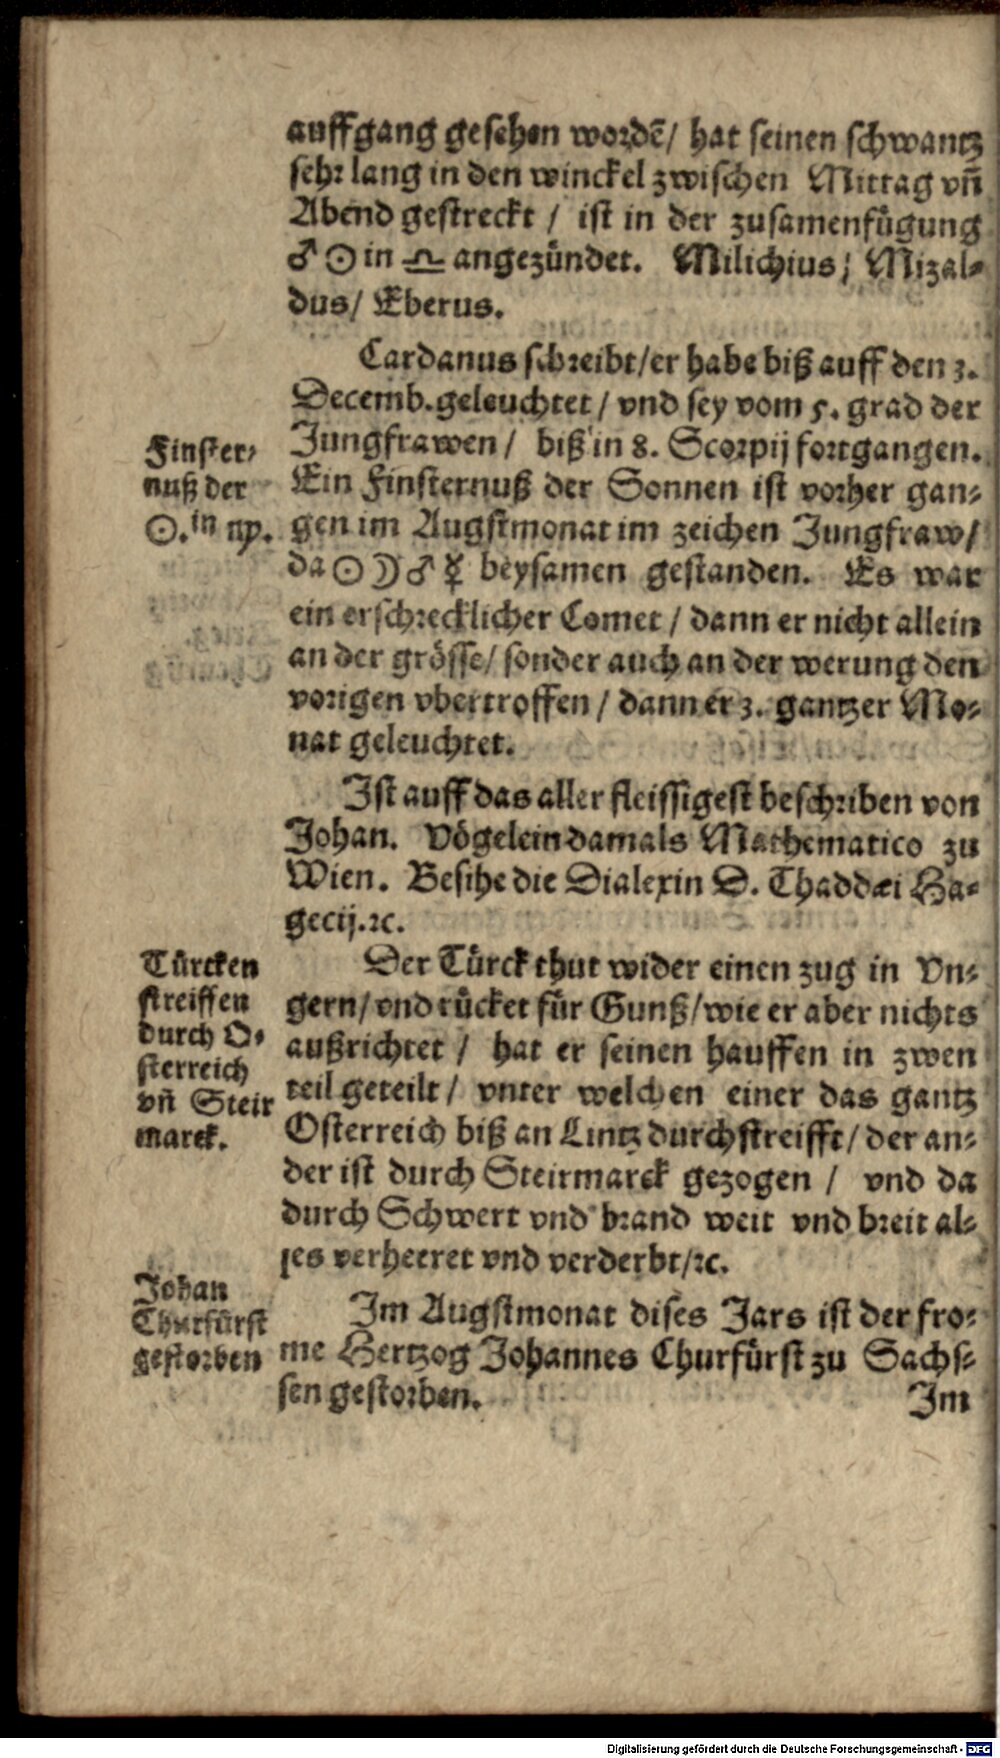 auffgang gesehen wordē/ hat seinen schwantz
sehr lang in den winckel zwischen Mittag vñ
Abend gestreckt / ist in der zusamenfügung
♂ ☉ in ♎ angezündet. Milichius/ Mizal⸗
dus/ Eberus.
Cardanus schreibt/er habe biß auff den 3.
Decemb.geleuchtet / vnd sey vom 5. grad der
Jungfrawen / biß in 8. Scorpij fortgangen.
Finster⸗
nuß der
☉.in ♍.
Ein Finsternuß der Sonnen ist vorher gan⸗
gen im Augstmonat im zeichen Jungfraw/
da ☉ ☽ ♂ ☿ beysamen gestanden. Es war
ein erschrecklicher Comet / dann er nicht allein
an der grösse/ sonder auch an der werung den
vorigen vbertroffen / dann er 3. gantzer Mo⸗
nat geleuchtet.
Ist auff das aller fleissigest beschriben von
Johan. Vögelein damals Mathematico zu
Wien. Besihe die Dialexin D. Thaddæi Ha⸗
gecij.ꝛc.
Türcken
streiffen
durch O⸗
sterreich
vñ Steir
marck.
Der Türck thut wider einen zug in Vn⸗
gern/ vnd rücket für Gunß/wie er aber nichts
außrichtet / hat er seinen hauffen in zwen
teil geteilt / vnter welchen einer das gantz
Osterreich biß an Lintz durchstreifft/ der an⸗
der ist durch Steirmarck gezogen / vnd da
durch Schwert vnd brand weit vnd breit al⸗
les verheeret vnd verderbt/ꝛc.
Johan
Churfürst
gestorben
Im Augstmonat dises Jars ist der fro⸗
me Hertzog Johannes Churfürst zu Sachs⸗
sen gestorben.
Im
Digitalisierung gefördert durch die Deutsche Forschungsgemeinschaft - DFG